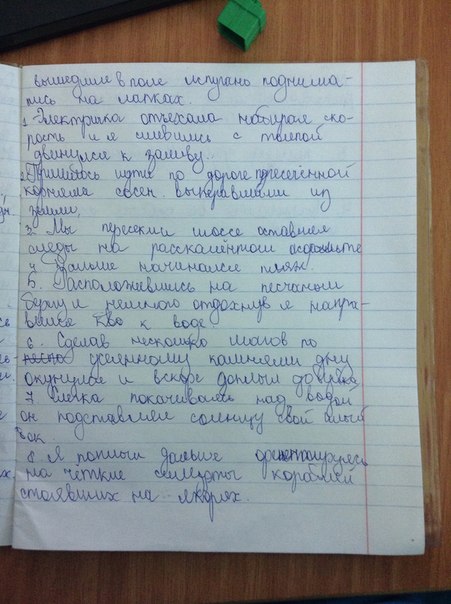 вышедшие в поле испугано поднима-
лись на лапках.
1. Электричка отъехала набирая ско-
рость и я слившись с толпой
двинулся к заливу.
2. Пришлось идти по дороге пересечённой
корнями сосен выпиравшими из
земли.
3. Мы пересекли шоссе оставляя
следы на расскалённом асфальте
4 Дальше начинался пляж.
5. Расположившись на песчаном
берегу и немного отдохнув я напра-
вился к воде.
6. Сделав несколько шагов по
усеянному камнями дну
окунулся и вскоре доплыл до буйка
7 Слегка покачиваясь над водой
он подставлял солнцу свой алый
бок.
8. Я поплыл дальше ориентируясь
на чёткие силуэты кораблей
стоявших на якорях.